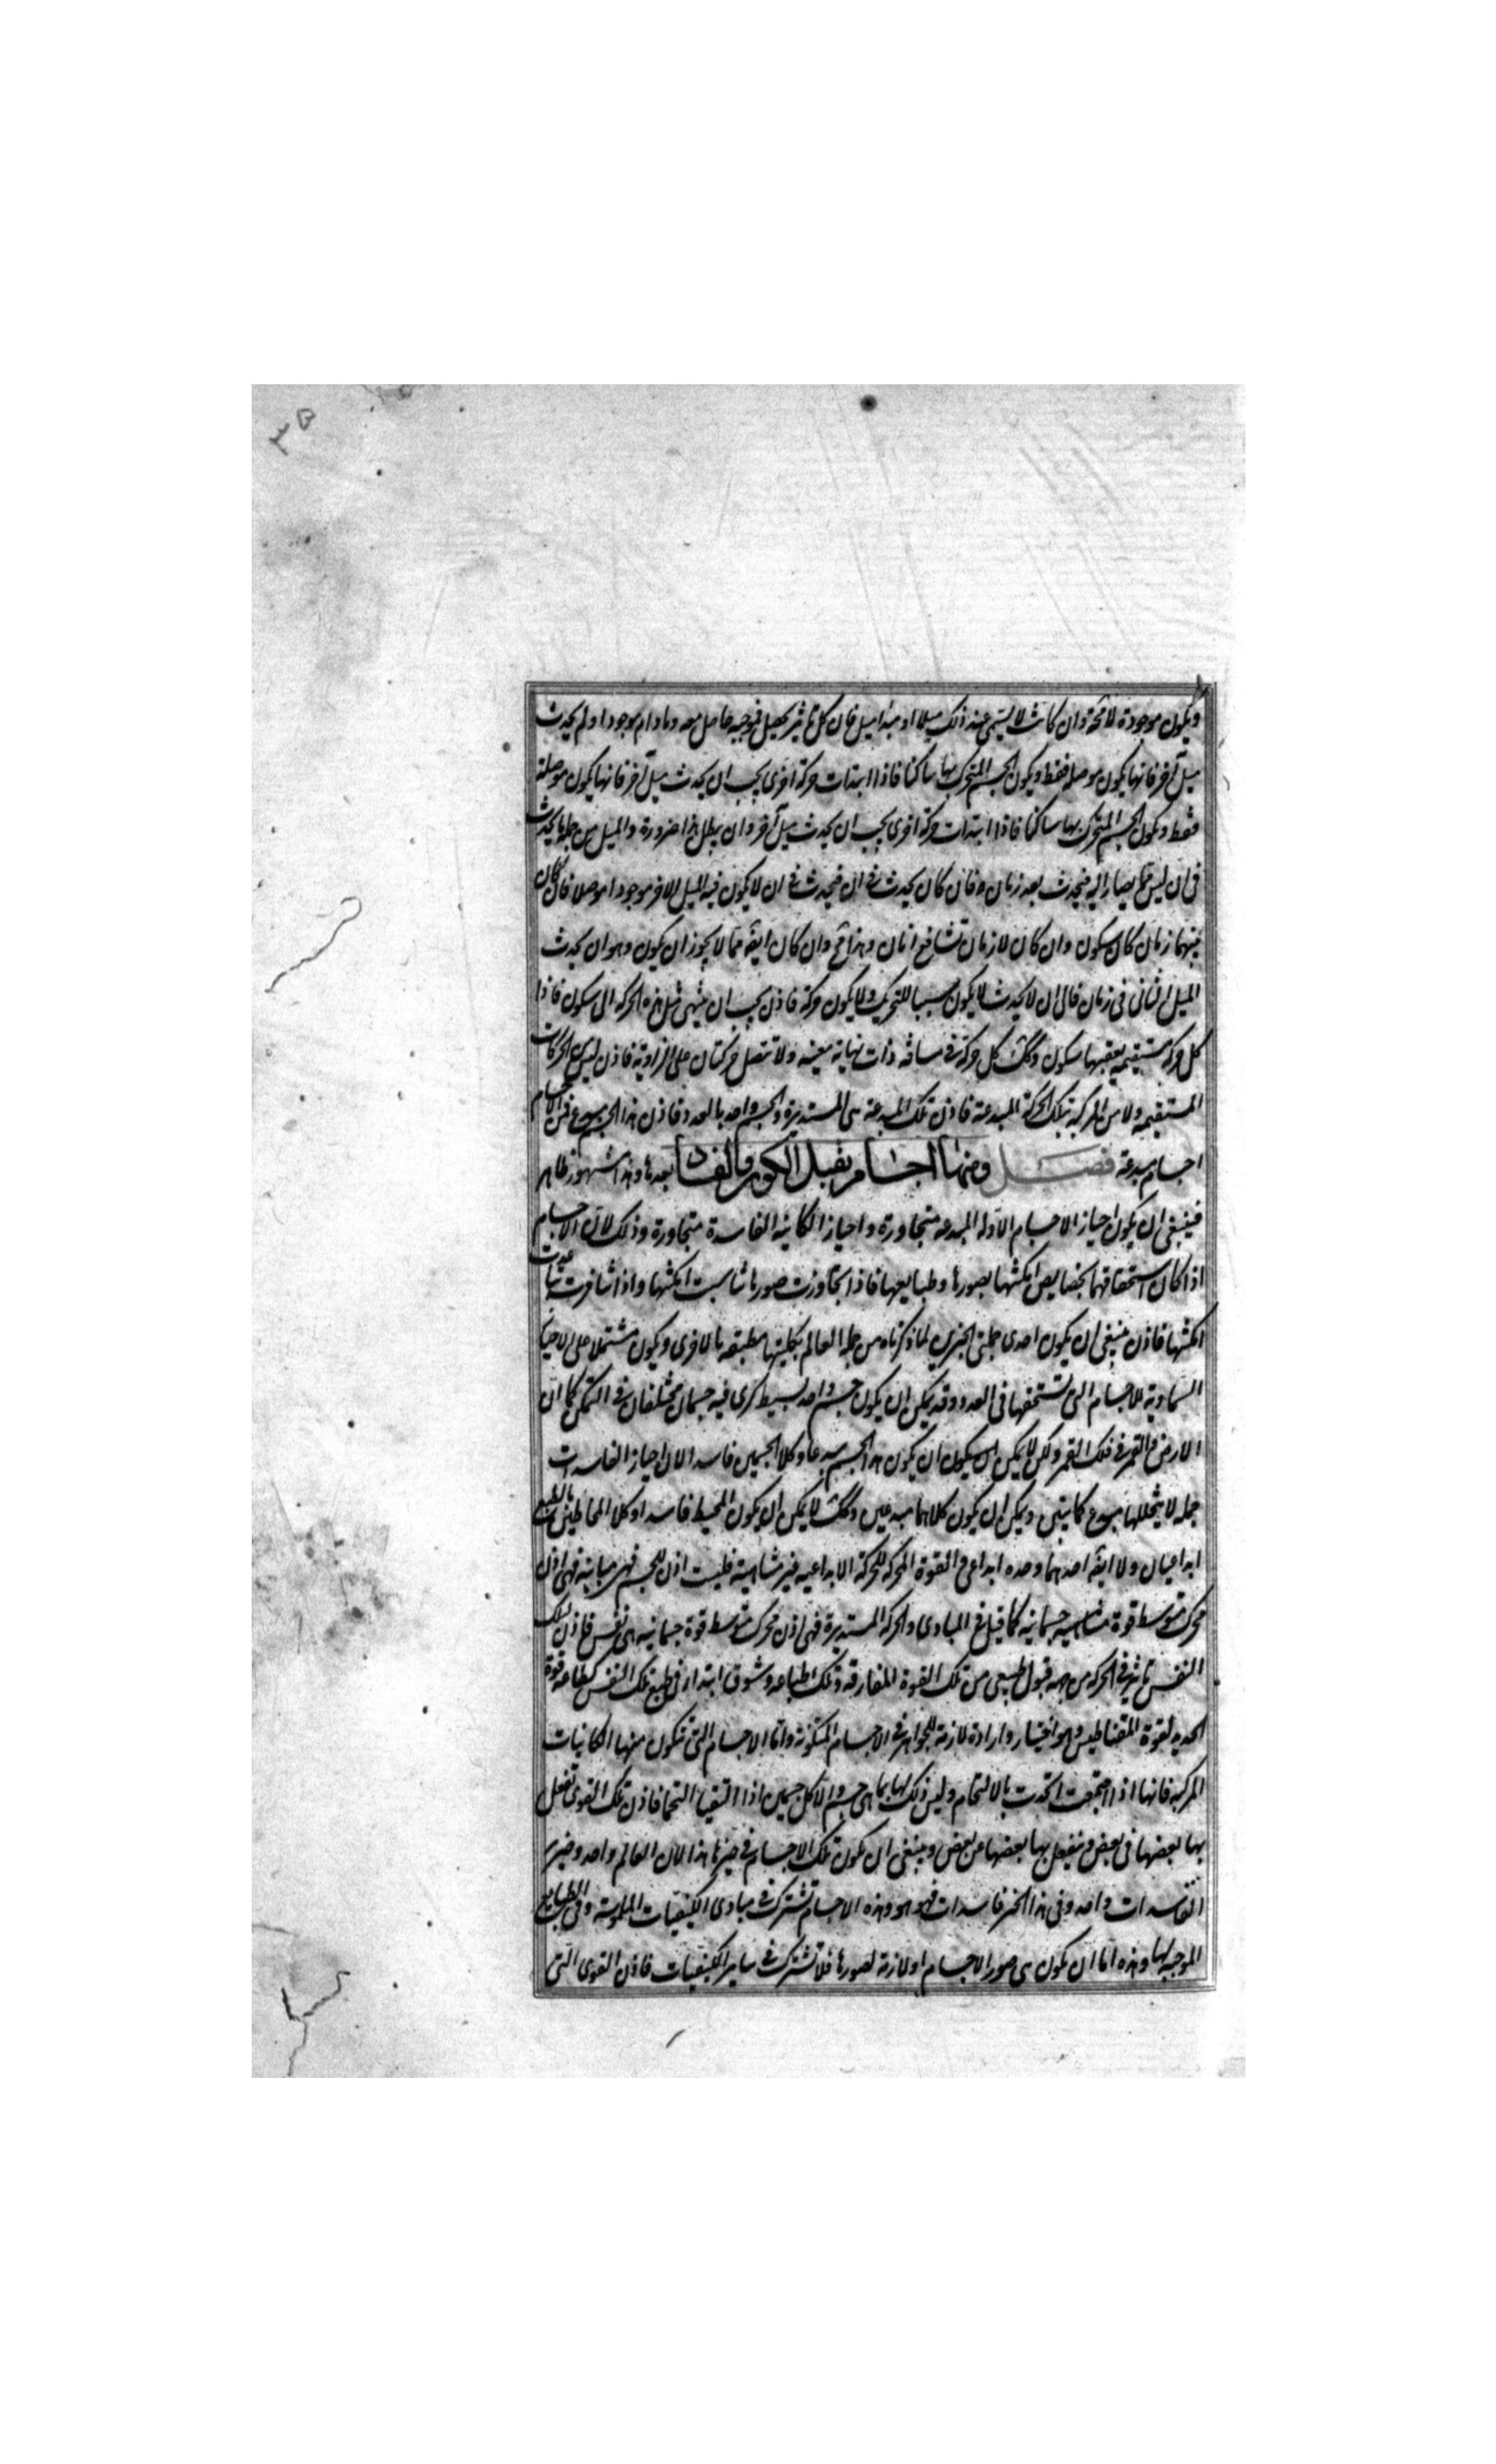 ٣٥
ويكون موجودة لا محة وان كانت لا يسمى عند ذلك ميلا او مبدا ميل فان كل تاثير يحصل فموجبه حاصل معه وما دام موجودا ولم يحدث
ميل آخر فانها يكون موصلة فقط ويكون الجسم المتحرك بها ساكنا فاذا ابتدات حركة اخرى يجب ان يحدث ميل آخر فانها يكون موصلة
فقط ويكون الجسم المتحرك بها ساكنا فاذا ابتدات حركة اخرى يجب ان يحدث ميل آخر وان يبطل هذا ضرورة والميل من جملة ما يحدث
فى ان ليس مما يصار اليه فيحدث بعد زمان فان كان يحدث فى ان فيحدث فى ان لا يكون فيه الميل الاخر موجودا موصلا فان كان
بينهما زمان كان سكون وان كان لا زمان تشافع انان وهذا مح وان كان ايضه مما لا يجوز ان يكون وهو ان يحدث
الميل الثانى فى زمان فالى ان لا يحدث لا يكون سببا للتحريك ولا يكون حركة فاذن يجب ان ينتهى مثل هذه الحركة الى سكون فاذا
كل حركة مستقيمة يعقبها سكون وكك كل حركة فى مسافة ذات نهاية معينة ولا تتصل حركتان على الزاوية فاذن ليس الحركات
المستقيمة ولا من المركبة تلك الحركة المبدعة فاذن تلك المبدعة هى المستديرة والجسم واحد بالعدد فاذن هذا الجسم مبدع فمن الاجسام
اجسام مبدعة فصل ومنها اجسام يقبل الكون والفساد بعدها وهذا مشهور ظاهر
فينبغى ان يكون احياز الاجسام الاولة المبدعة متجاورة واحياز الكاينة الفاسدة متجاورة وذلك لان الاجسام
اذا كان استحقاقها بخصايص امكنتها بصورها وطبايعها فاذا تجاورت صورها تناسبت امكنتها واذا تنافرت تباعدت
امكنتها فاذن ينبغى ان يكون احدى جملتى الحيزين لما ذكرناه من جملة العالم بكليتها مطبقة بالاخرى ويكون مشتملا على الاحياز
السماوية للاجسام التى تستحقها فى العدد وقد يمكن ان يكون جسم واحد بسيط كرى فيه جسمان مختلفان فى التمكن كما ان
الارض والقمر فى فلك القمر ولكن لا يمكن ان يكون ان يكون هذا الجسم مبدعا وكلا الجسمين فاسد الان احياز الفاسدات
جملة لا يتخللها مبدع كما يتبين ويمكن ان يكون كلاهما مبدعين وكك لا يمكن ان يكون المحيط فاسدا وكلا المحاطين بالطبع
ابداعيان ولا ايضه احدهما وحده ابداعى والقوة المحركة للحركة الابداعية غير متناهية فليست اذن للجسم فهى مباينة فهى اذن
محرك بتوسط قوة متناهية جسمانية كما قيل فى المبادى والحركة المستديرة فهى اذن محرك بتوسط قوة جسمانية هى نفس فاذن لتلك
النفس تاثير فى الحركة من جهة قبول طبيعى من تلك القوة المفارقة وتلك اطباعة وشوق ابتدا فى طبع تلك النفس كطاعة قوة
الحديد لقوة المقناطيس وهو اختيار وارادة لازمة للجواهر فى الاجسام المتكونة واما الاجسام التى تتكون منها الكاينات
المركبة فانها اذا اجتمعت اتحدت بالالتحام وليس ذلك لها بما هى جسم والا كل جسمين اذا التقيا التحما فاذن تلك القوى تفعل
بها بعضها فى بعض وينفعل بها بعضها عن بعض وينبغى ان يكون تلك الاجسام فى حيزها هذا لان العالم واحد وحيز
الفاسدات واحد وفى هذا الحيز فاسدات فهو هو وهذه الاجسام تشترك فى مبادى الكيفيات الملموسة وفى الطبايع
الموجبة لها وهذه اما ان يكون هى صور الاجسام او لازمة لصورها فلا تشترك فى ساير الكيفيات فاذن القوى التى